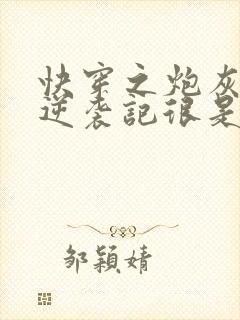 快穿之炮灰
逆袭記很是
邹穎婧